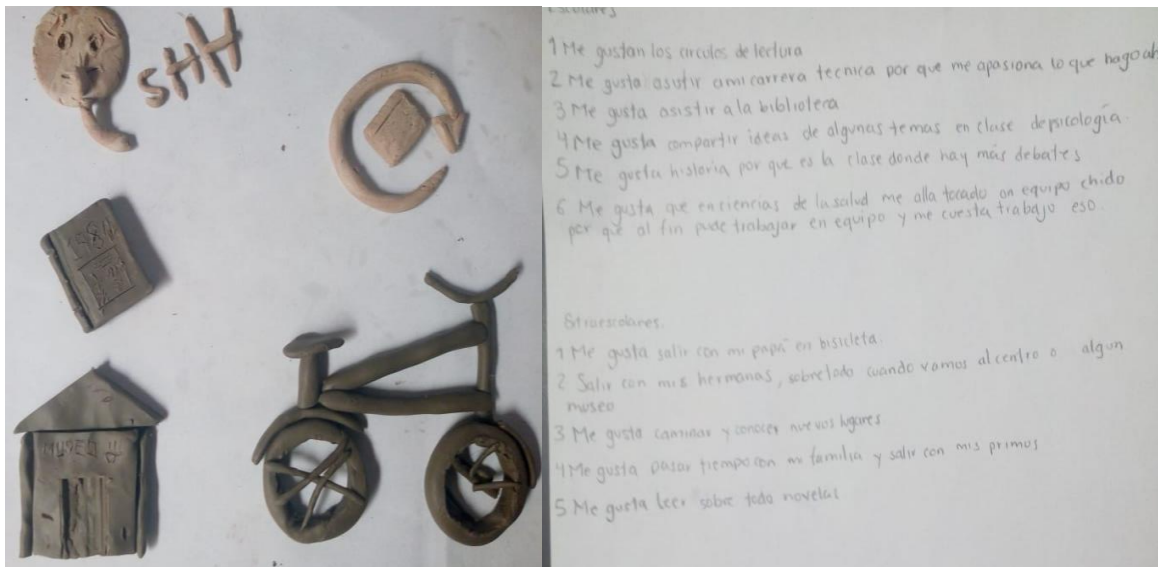 SHH
1984
MUSEO
Escolares
1 Me gustan los circulos de lectura
2 Me gusta asistir a mi carrera tecnica por que me apasiona lo que hago ah
3 Me gusta asistir a la biblioteca
4 Me gusta compartir ideas de algunas temas en clase de psicología.
5 Me gusta historia por que es la clase donde hay más debates
6 Me gusta que en ciencias de la salud me alla tocado un equipo chido
por que al fin pude trabajar en equipo y me cuesta trabajo eso.
Extraescolares.
1 Me gusta salir con mi papá en bisicleta.
2 Salir con mis hermanas, sobre todo cuando vamos al centro o algun
museo
3 Me gusta caminar y conocer nuevos lugares
4 Me gusta pasar tiempo con mi familia y salir con mis primos
5 Me gusta leer sobre todo novelas